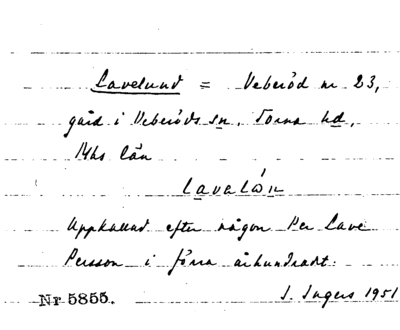 Lavelund = Veberöd nr 23,
gård i Veberöds sn, Torna hd,
Mhs län
Uppkallad efter någon Per Lave
Persson i förra århundradet.
Nr 5855. I. Ingers 1951